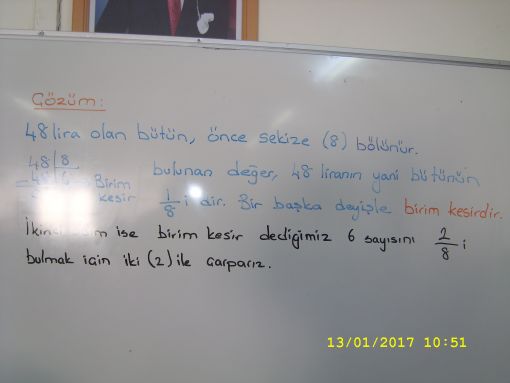 Çözüm:
48 lira olan bütün, önce sekize (8) bölünür.
48 | 8
48 | 6 → Birim kesir
bulunan değer, 48 liranın yani bütünün
1/8 i dir. Bir başka deyişle birim kesirdir.
ise birim kesir dediğimiz 6 sayısını 2/8 i
bulmak için iki (2) ile çarparız.
13/01/2017 10:51